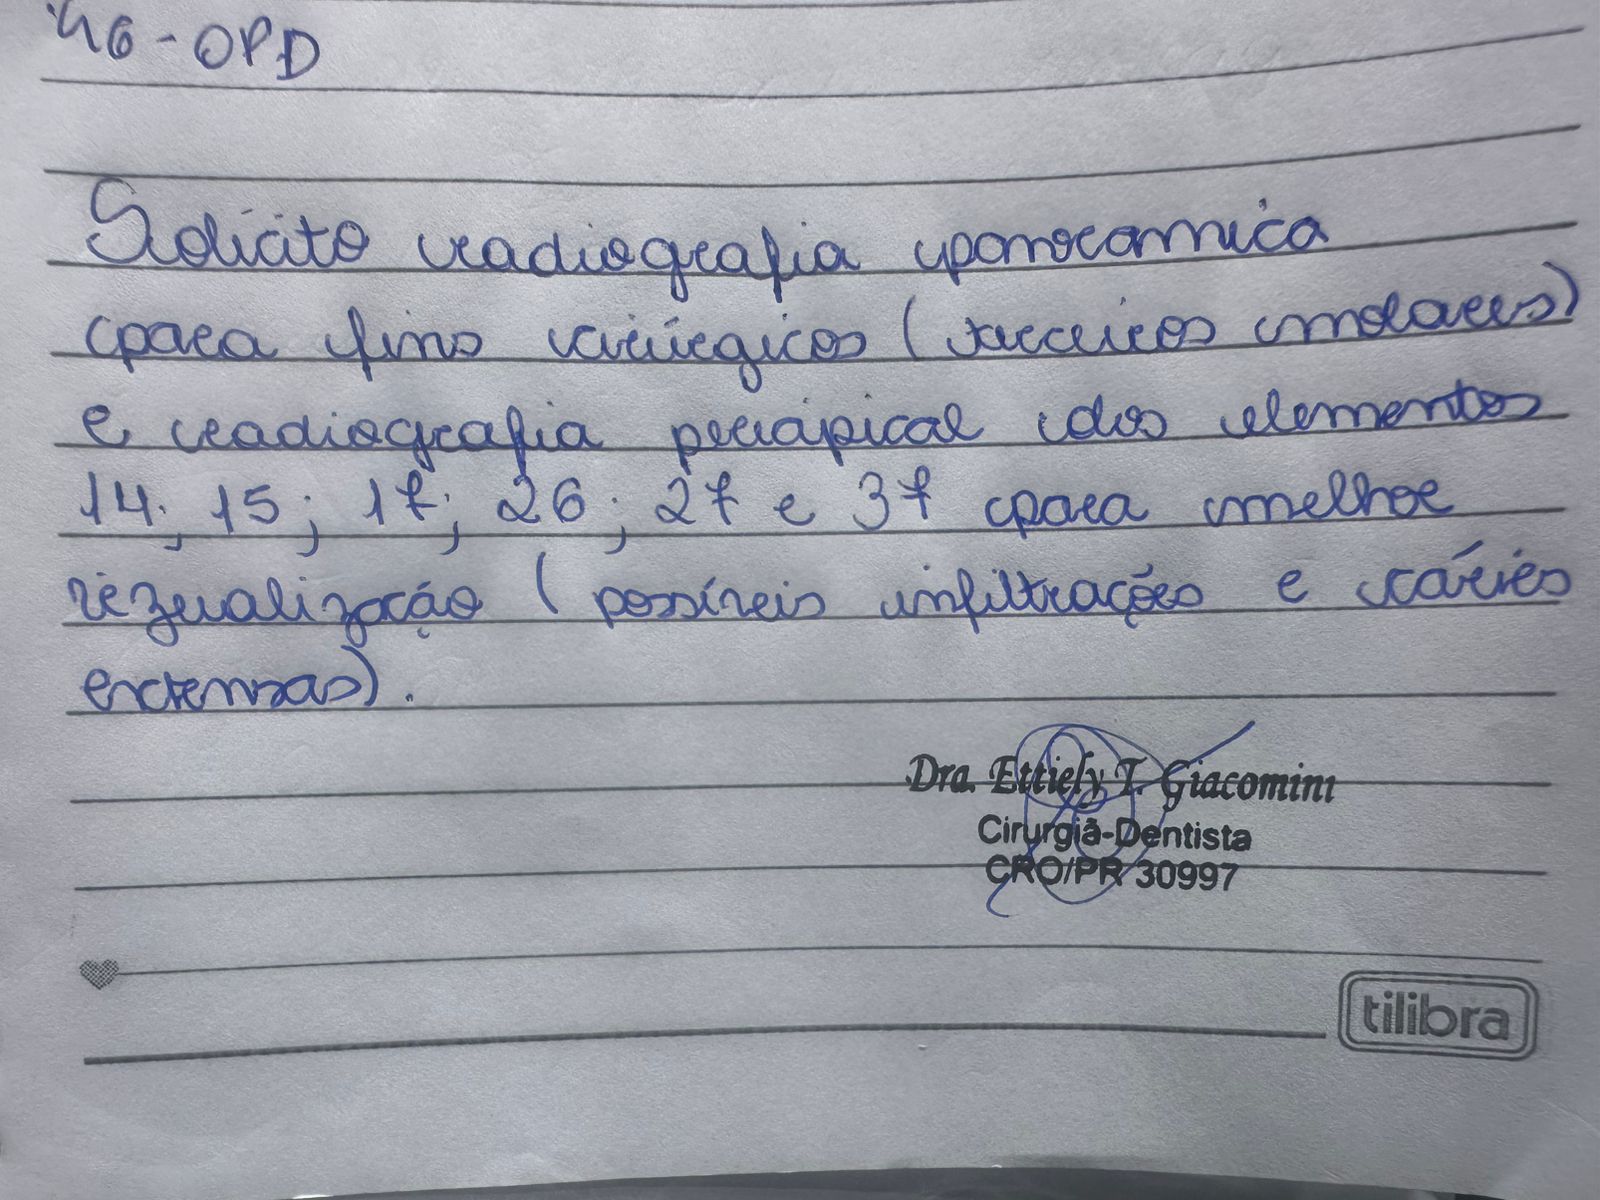 46 - OPD
Solicito radiografia panoramica
para fins cirúrgicos (terceiros molares)
e radiografia periápical dos elementos
14; 15; 17; 26; 27 e 37 para melhor
vizualização (possíveis infiltrações e cáries
extensas).
Dra. Ettiely T. Giacomini
Cirurgiã-Dentista
CRO/PR 30997
tilibra